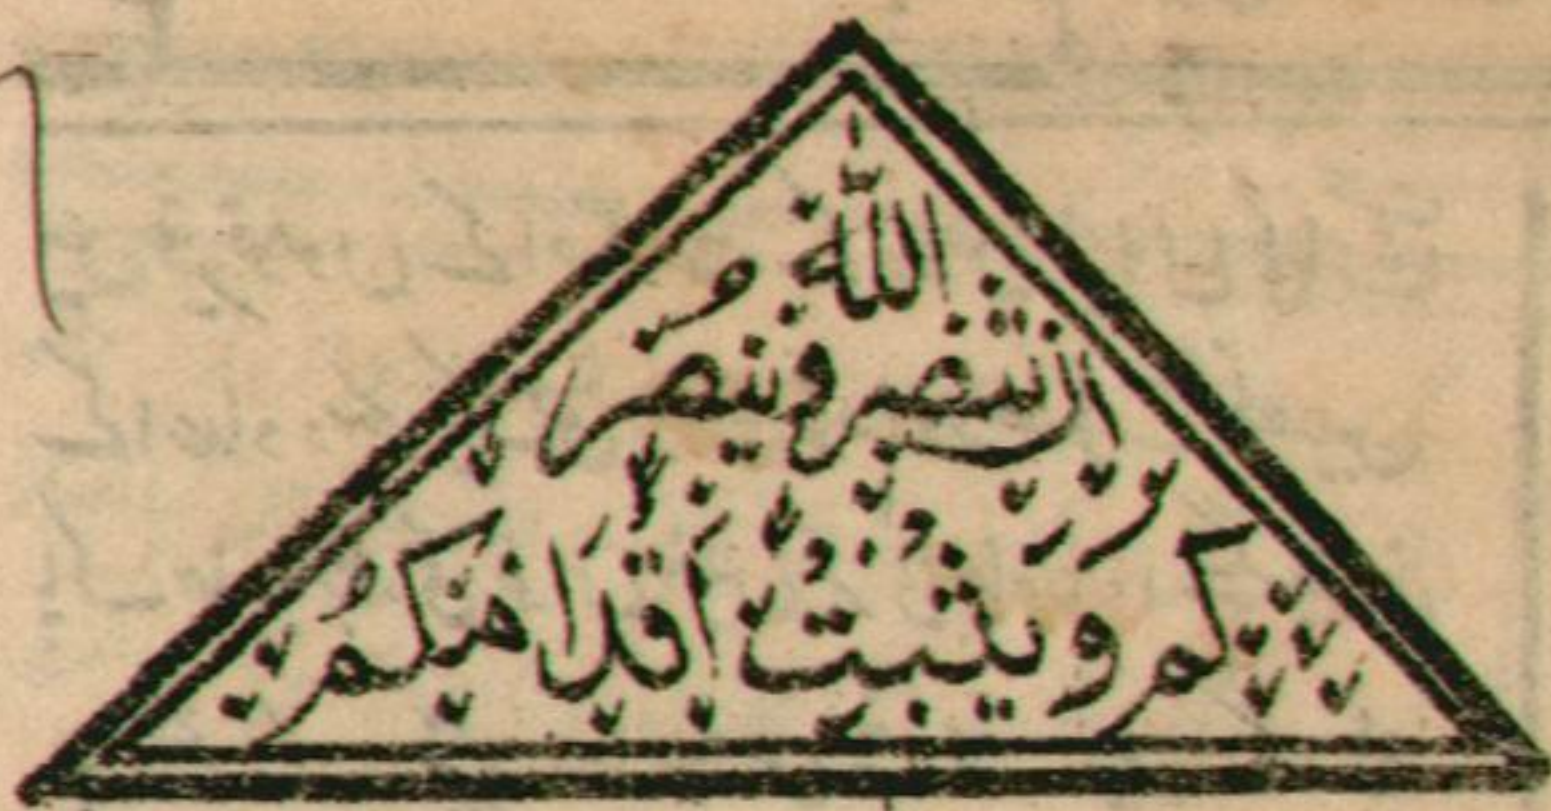 الله
ان تنصرو ينصر
كم ويثبت أقدامكم